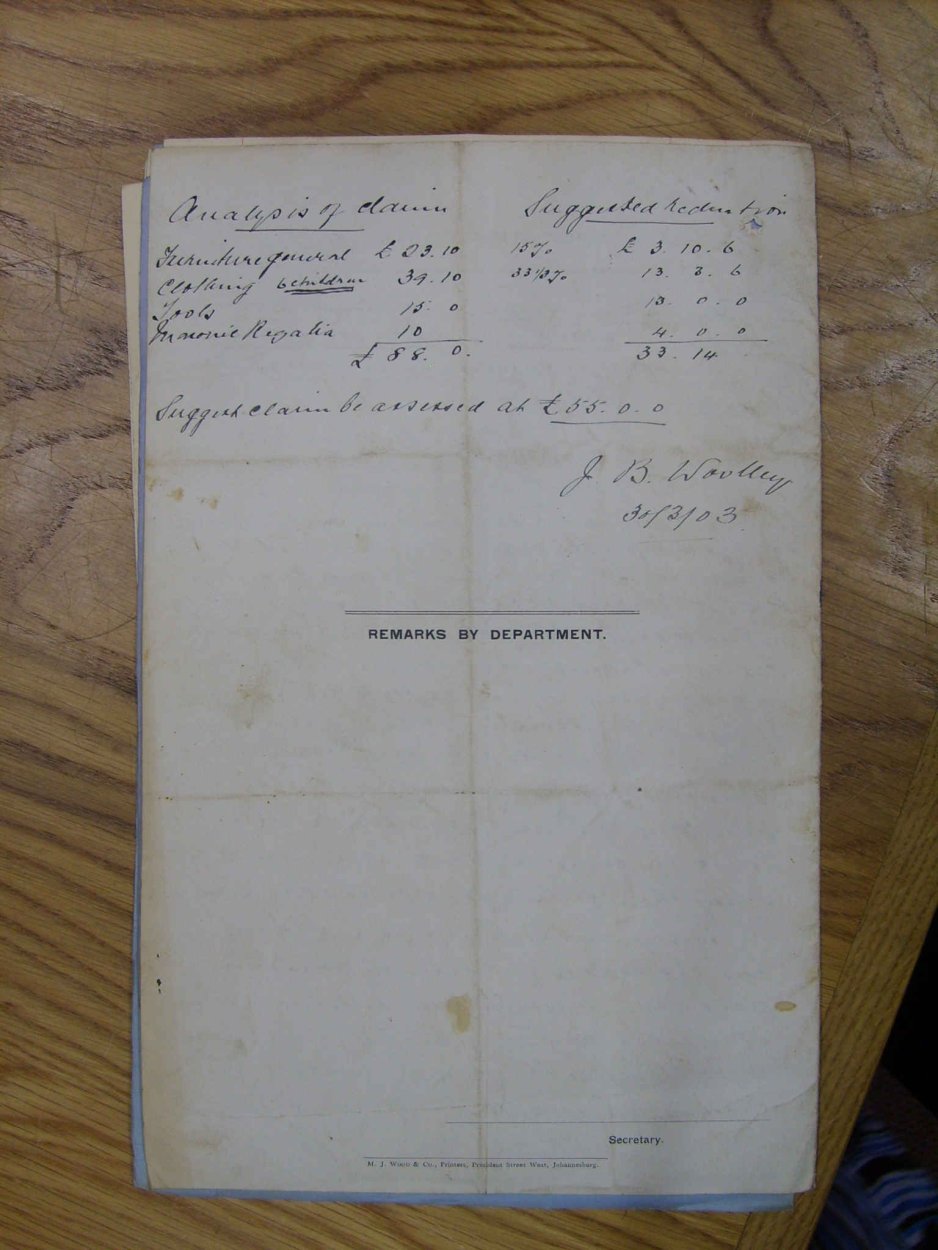 Analysis of claim Suggested Reduction
Furniture general £ 23. 10 15% £ 3. 10. 6
Clothing 6 children 39. 10 33 1/3% 13. 3. 6
Tools 15. 0 13. 0. 0
Masonic Regalia 10 4. 0. 0
£ 88. 0. 33. 14
Suggest claim be assessed at £55. 0. 0
J. B. Woolley
30/3/03
REMARKS BY DEPARTMENT.
Secretary.
M. J. Wood & Co., Printers, President Street West, Johannesburg.